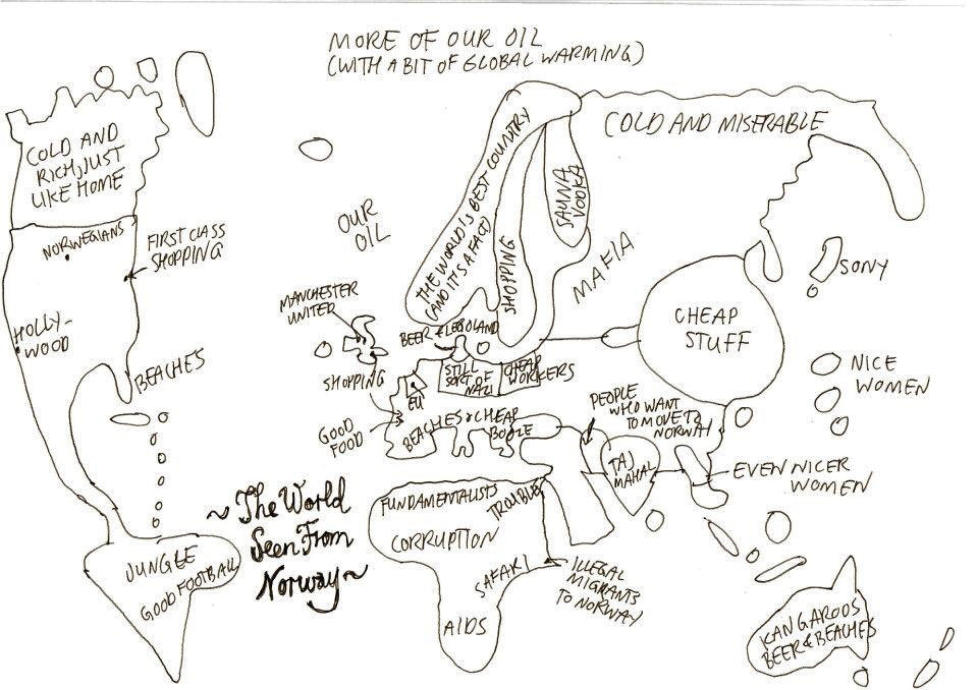 MORE OF OUR OIL
(WITH A BIT OF GLOBAL WARMING)
COLD AND
RICH, JUST
LIKE HOME
NORWEGIANS
FIRST CLASS
SHOPPING
HOLLY-
WOOD
BEACHES
OUR
OIL
THE WORLD'S BEST COUNTRY
(AND IT'S A FACT)
SHOPPING
SAUNA
VODKA
COLD AND MISERABLE
MAFIA
MANCHESTER
UNITED
BEER & LEGOLAND
SHOPPING
STILL
SORT OF
NAZI
CHEAP
WORKERS
EU
GOOD
FOOD
BEACHES & CHEAP
BOOZE
CHEAP
STUFF
SONY
NICE
WOMEN
PEOPLE
WHO WANT
TO MOVE TO
NORWAY
TAJ
MAHAL
EVEN NICER
WOMEN
~ The World
Seen From
Norway ~
JUNGLE
GOOD FOOTBALL
FUNDAMENTALISTS
TROUBLE
CORRUPTION
SAFARI
AIDS
ILLEGAL
MIGRANTS
TO NORWAY
KANGAROOS
BEER & BEACHES